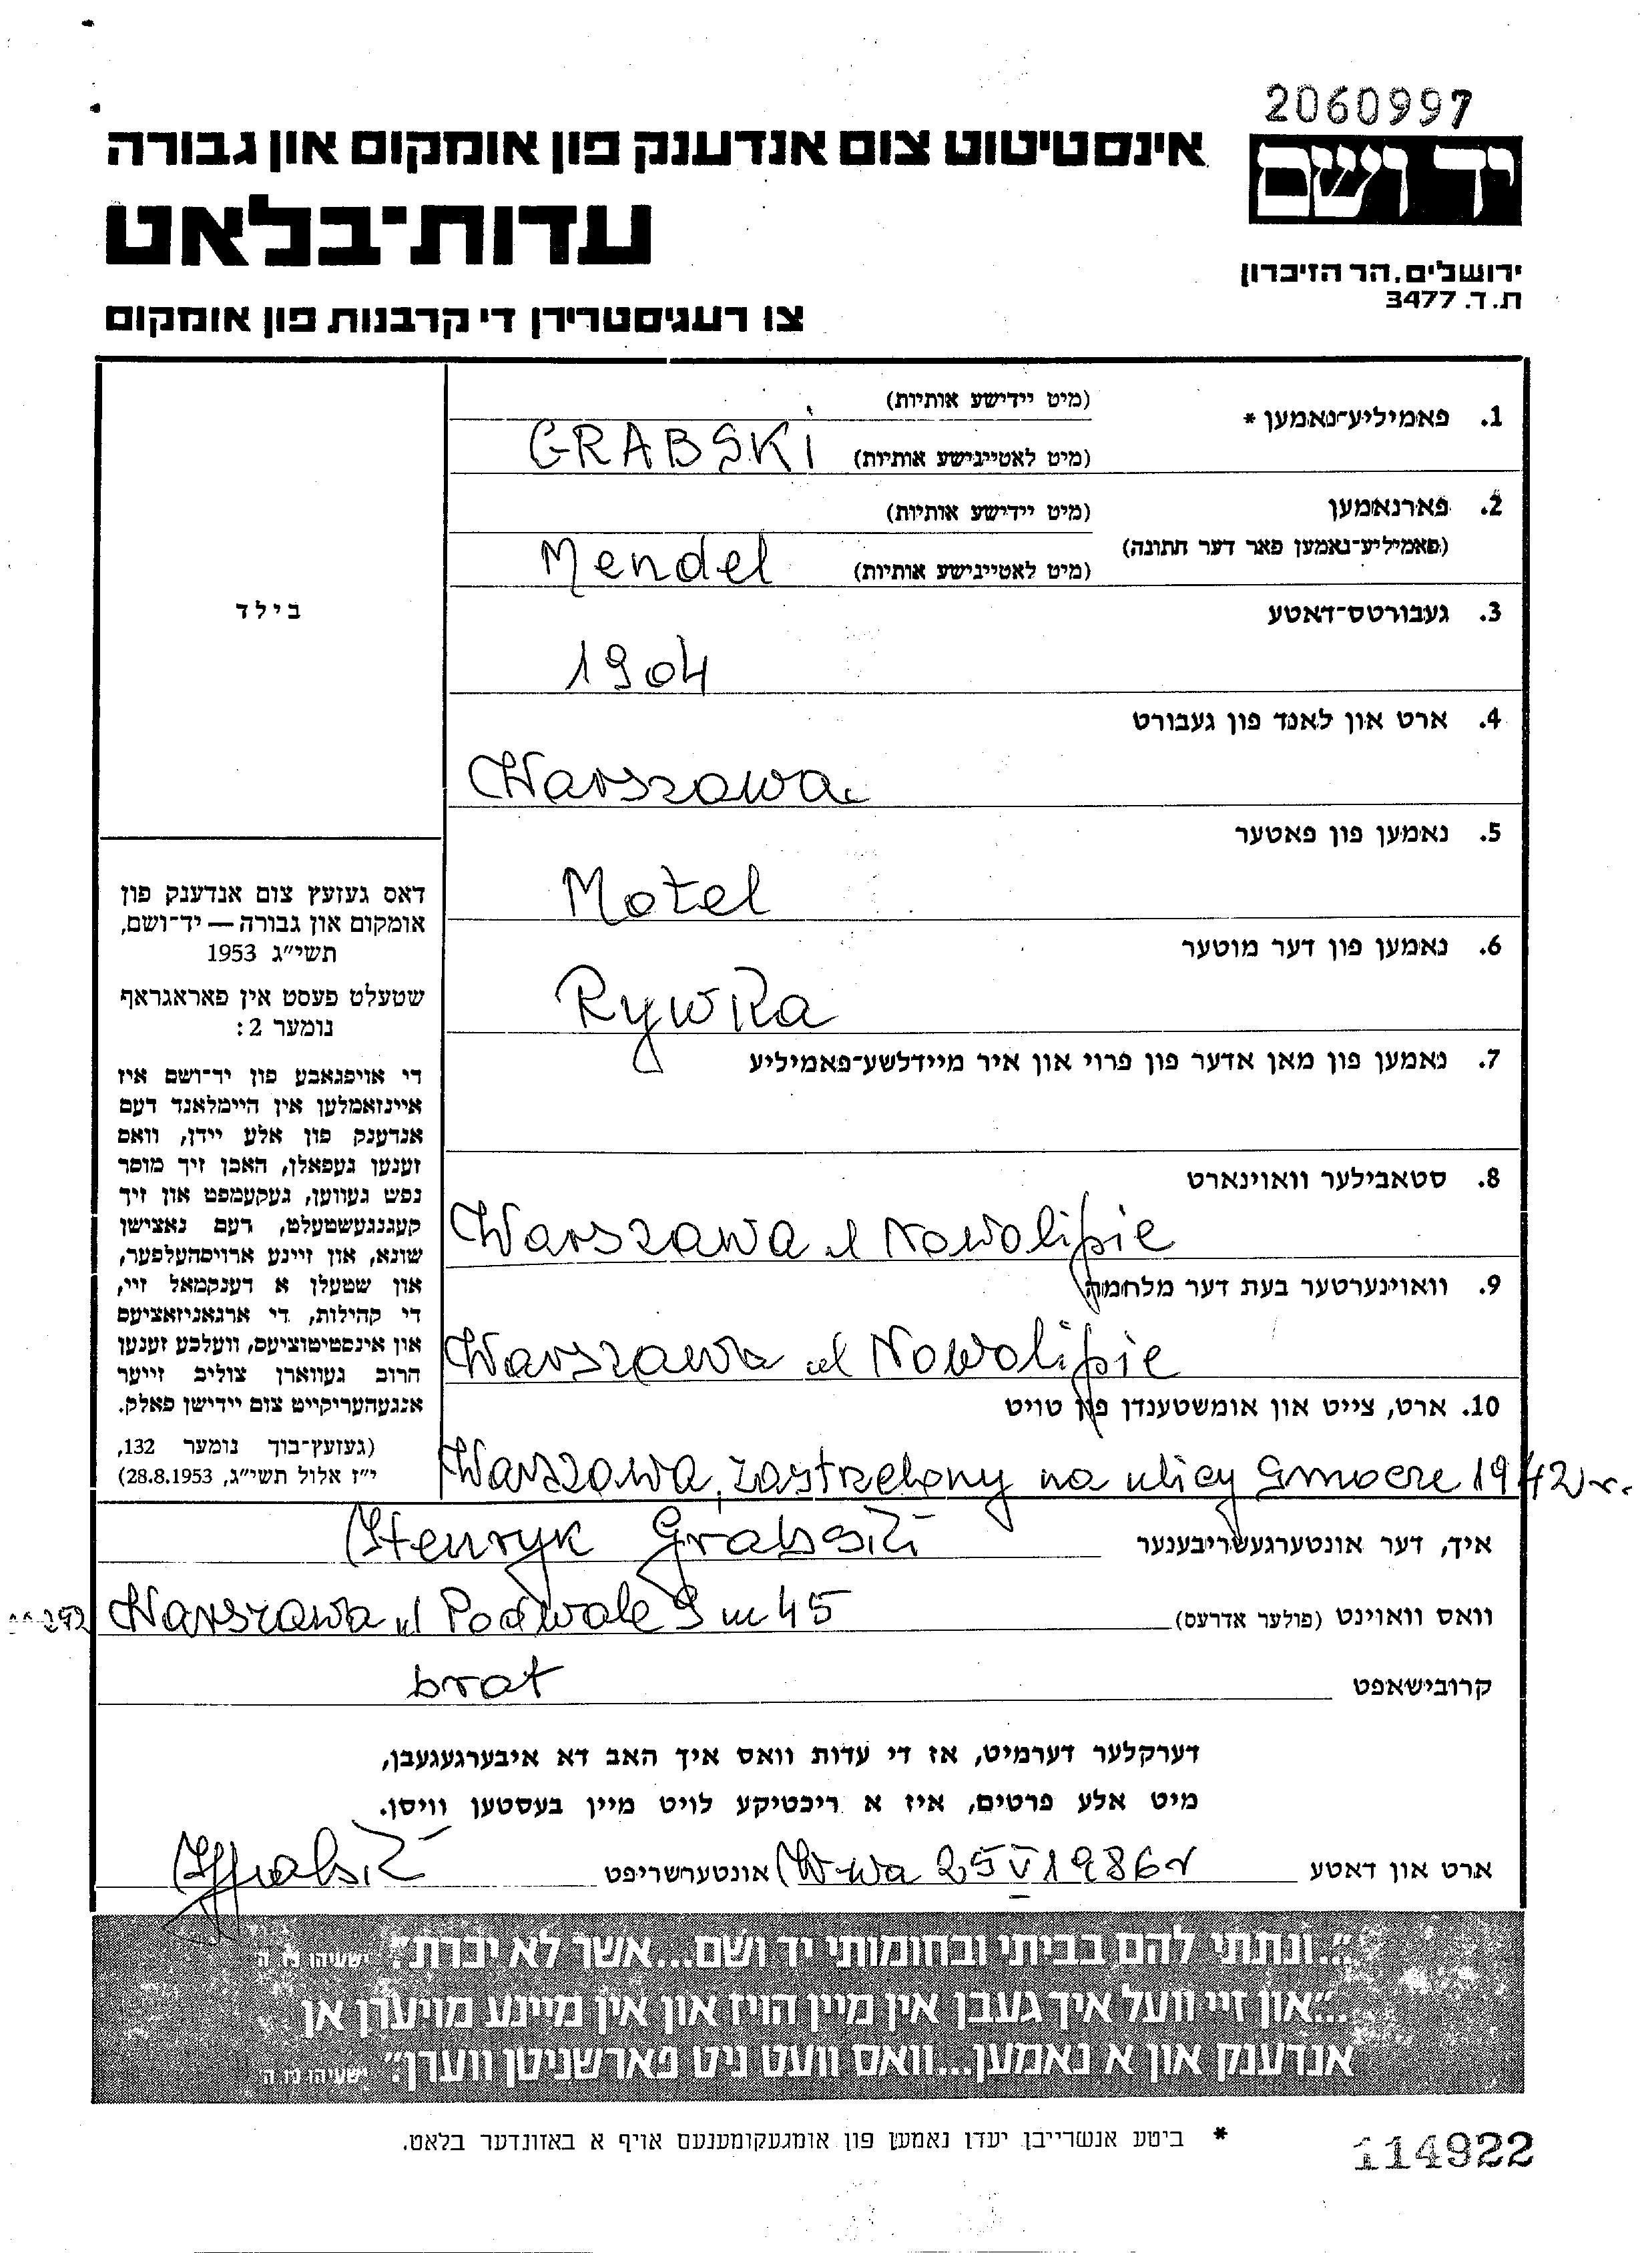 2060997
יד ושם
ירושלים, הר הזיכרון
ת. ד. 3477
אינסטיטוט צום אנדענק פון אומקום און גבורה
עדות־בלאט
צו רעגיסטרירן די קרבנות פון אומקום
1. פאמיליע־נאמען *
(מיט יידישע אותיות)
(מיט לאטיינישע אותיות) GRABSKI
2. פארנאמען
(פאמיליע־נאמען פאר דער חתונה)
(מיט יידישע אותיות)
(מיט לאטיינישע אותיות) Mendel
3. געבורטס־דאטע
1904
4. ארט און לאנד פון געבורט
Warszawa
5. נאמען פון פאטער
Motel
6. נאמען פון דער מוטער
Rywka
7. נאמען פון מאן אדער פון פרוי און איר מיידלשע־פאמיליע
8. סטאבילער וואוינארט
Warszawa ul Nowolipie
9. וואוינערטער בעת דער מלחמה
Warszawa ul Nowolipie
10. ארט, צייט און אומשטענדן פון טויט
Warszawa, zastrzelony na ulicy Smocze 1942 r.
בילד
דאס געזעץ צום אנדענק פון
אומקום און גבורה — יד־ושם,
תשי״ג 1953
שטעלט פעסט אין פאראגראף
נומער 2:
די אויפגאבע פון יד־ושם איז
איינזאמלען אין היימלאנד דעם
אנדענק פון אלע יידן, וואס
זענען געפאלן, האבן זיך מוסר
נפש געווען, געקעמפט און זיך
קעגנגעשטעלט, דעם נאצישן
שונא, און זיינע ארויסהעלפער,
און שטעלן א דענקמאל זיי,
די קהילות, די ארגאניזאציעס
און אינסטיטוציעס, וועלכע זענען
חרוב געווארן צוליב זייער
אנגעהעריקייט צום יידישן פאלק.
(געזעץ־בוך נומער 132,
י״ז אלול תשי״ג, 28.8.1953)
איך, דער אונטערגעשריבענער Henryk Grabski
וואס וואוינט (פולער אדרעס) Warszawa ul Podwale 9 m 45
קרובישאפט brat
דערקלער דערמיט, אז די עדות וואס איך האב דא איבערגעגעבן,
מיט אלע פרטים, איז א ריכטיקע לויט מיין בעסטען וויסן.
ארט און דאטע W-wa 25 V 1986 r אונטערשריפט HGrabski
״..ונתתי להם בביתי ובחומותי יד ושם...אשר לא יכרת״. ישעיהו נו ה
״...און זיי וועל איך געבן אין מיין הויז און אין מיינע מויערן אן
אנדענק און א נאמען...וואס וועט ניט פארשניטן ווערן״. ישעיהו נו ה
* ביטע אנשרייבן יעדן נאמען פון אומגעקומענעם אויף א באזונדער בלאט.
114922